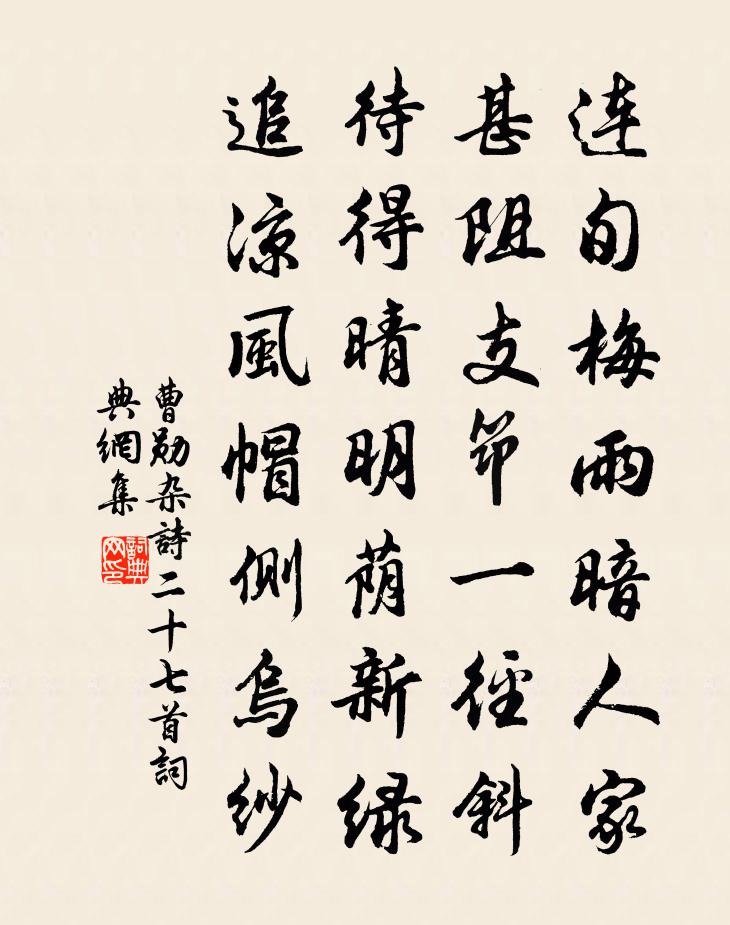 連旬梅雨暗人家
甚阻支笻一徑斜
待得晴明荫新绿
追涼風帽側烏紗
曹勛杂詩二十七首詞
典網集
詞典
网印